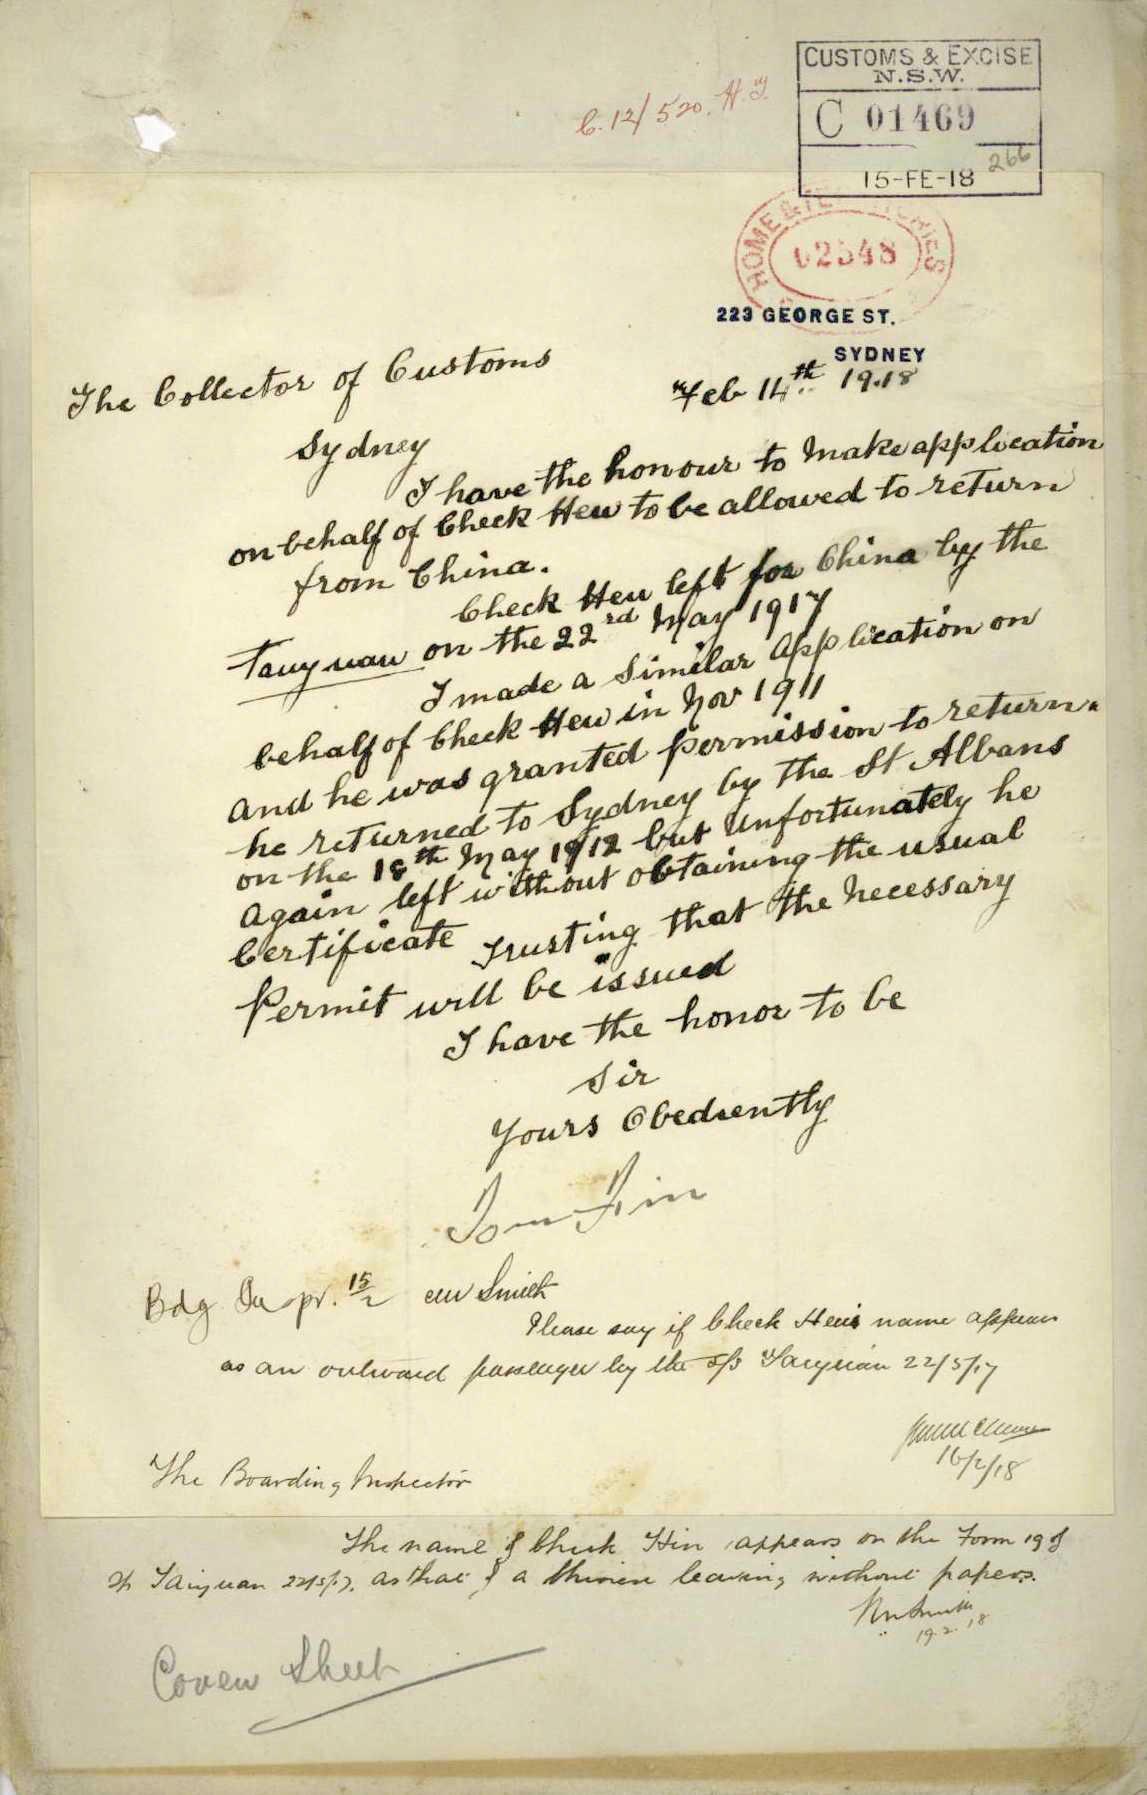 C.12/520. H.T.
CUSTOMS & EXCISE
N.S.W.
C 01469
15-FE-18
266
HOME &
02548
223 GEORGE ST.
SYDNEY
Feb 14th 1918
The Collector of Customs
Sydney
I have the honour to make application
on behalf of Check Heu to be allowed to return
from China.
Check Heu left for China by the
Taiyuan on the 22rd May 1917
I made a similar application on
behalf of Check Heu in Nov 1911
and he was granted Permission to return.
he returned to Sydney by the St Albans
on the 18th May 1912 but unfortunately he
again left without obtaining the usual
Certificate Trusting that the necessary
Permit will be issued
I have the honor to be
Sir
Yours Obediently
Bdg Inspr. 15/2 Smith
Please say if Check Heu's name appears
as an outward passenger by the s/s Taiyuan 22/5/17
16/2/18
The Boarding Inspector
The name of Check Hin appears on the Form 19 of
Taiyuan 22/5/17. as that of a Chinese leaving without papers.
19.2.18
Cover Sheet